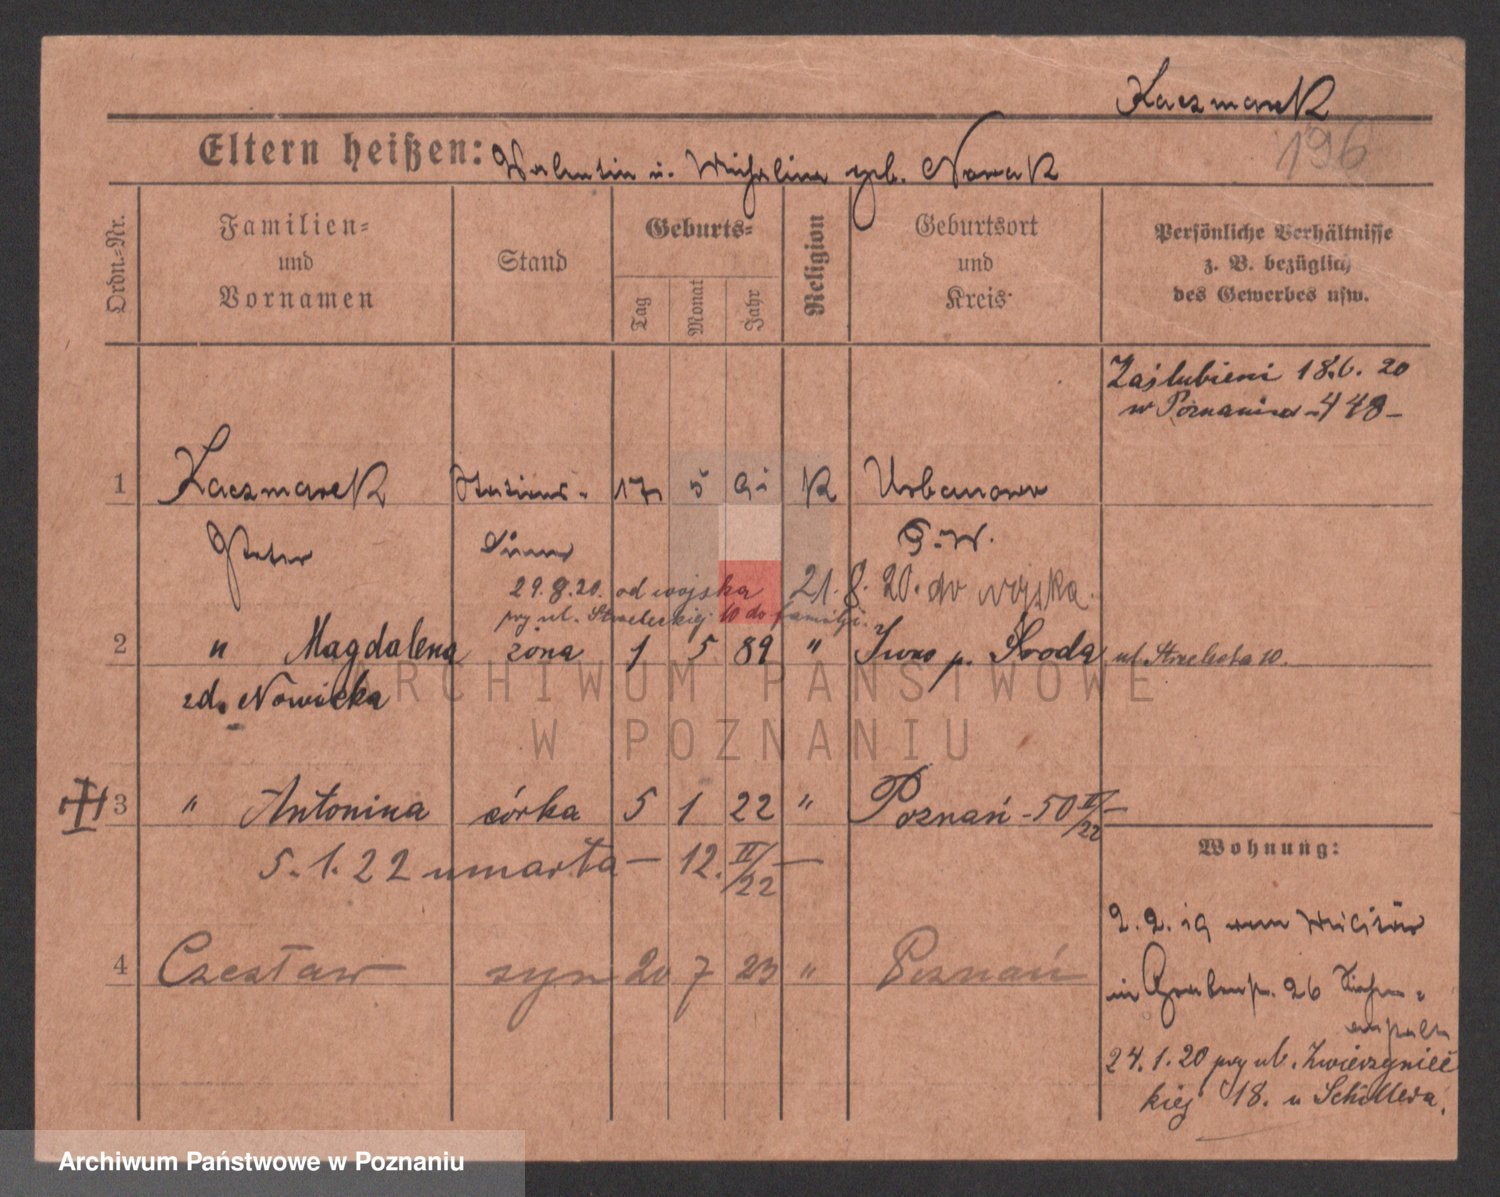 Kaczmarek
196
Eltern heißen: Valentin u. Michalina geb. Nowak
Ordn.-Nr.
Familien-
und
Vornamen
Stand
Geburts-
Tag
Monat
Jahr
Religion
Geburtsort
und
Kreis
Persönliche Verhältnisse
z. B. bezüglich
des Gewerbes usw.
Zaślubieni 18.6.20
w Poznaniu - 448 -
1 Kaczmarek 17 5 91 K Urbanowo
Peter
29.8.20. od wojska 21.8.20. do wojska.
przy ul. Strzeleckiej 10 do familji.
2 " Magdalena żona 1 5 89 " Iwno p. Środa ul. Strzelecka 10.
zd. Nowicka
3 " Antonina córka 5 1 22 " Poznań - 50 II/22 -
5.1.22 umarła - 12. II/22 -
Wohnung:
4 Czesław syn 20 7 23 " Poznań
2.2.19 vom Militär
in Grabenstr. 26
24.1.20 przy ul. Zwierzyniec
kiej 18. u Schillera.
ARCHIWUM PAŃSTWOWE
W POZNANIU
Archiwum Państwowe w Poznaniu